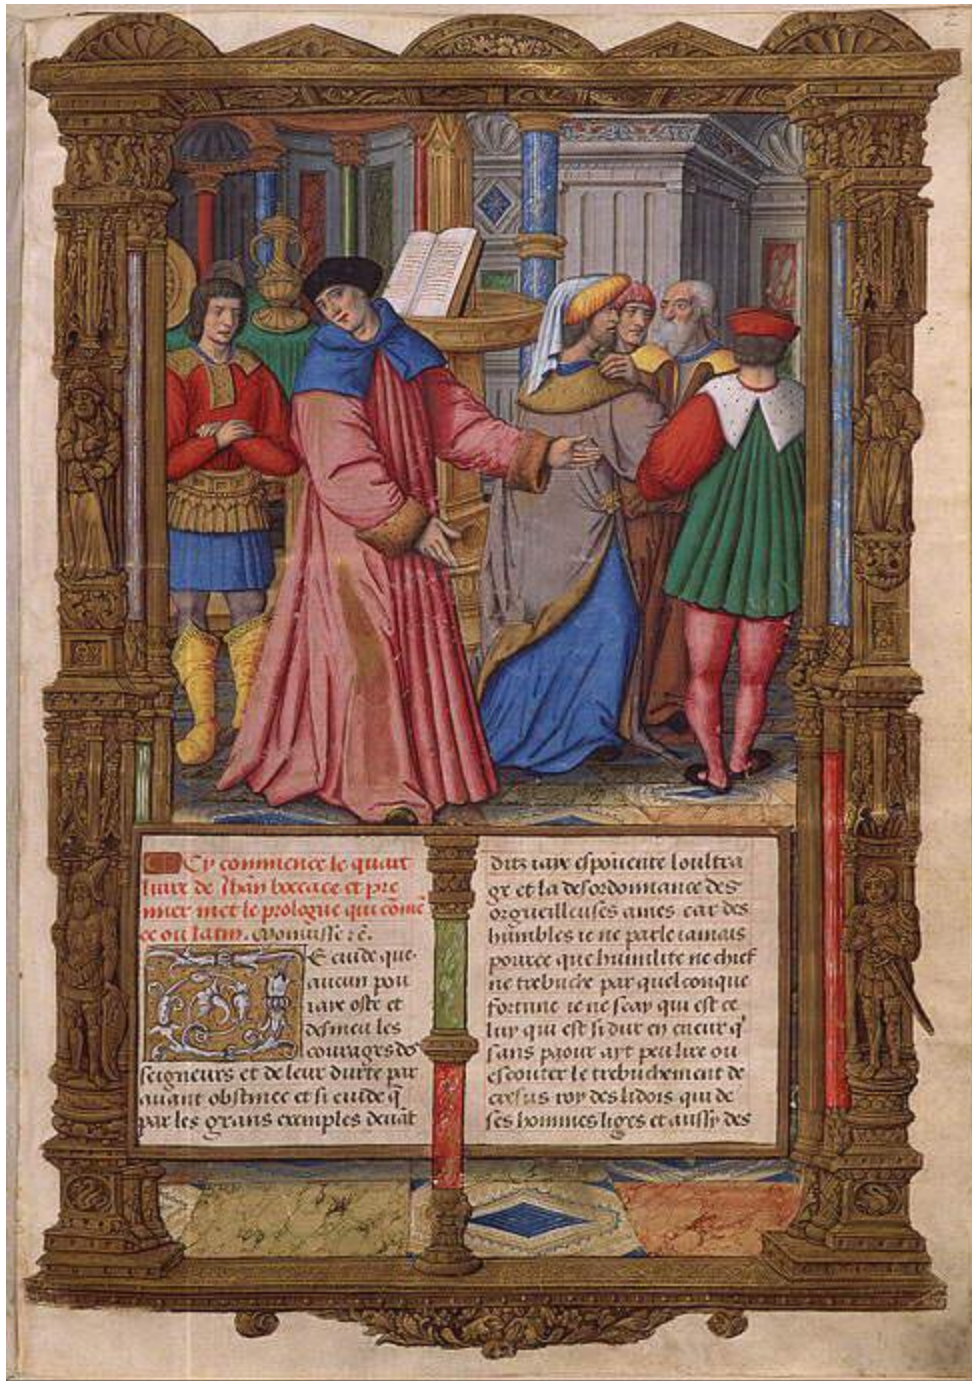 Cy commence le quart
livre de Jhan boccace et pre
mier met le prologue qui cōmē
ce ou latin. Monuisse &c.
Ie cuide que
aucun pou
iaye oste et
desmeu les
courages des
seigneurs et de leur durte par
auant obstinee et si cuide q̄
par les grans exemples deuāt
ditz iaye espouente loultra
ge et la desordonnance des
orgueilleuses ames car des
humbles ie ne parle iamais
pource que humilite ne chiet
ne trebuche par quelconque
fortune ie ne scay qui est ce
luy qui est si dur en cueur q̄
sans paour ayt peu lire ou
escouter le trebuchement de
cresus roy des lidois qui de
ses hommes liges et aussy des